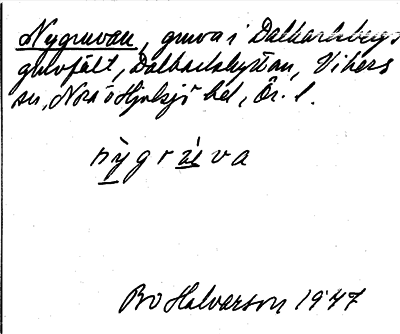 Nygruvan, gruva i Dalkarlsbergs
gruvfält, Dalkarlshyttan, Vikers
sn, Nora o Hjulsjö hd, Ör. l.
nỳgrùva
Bo Halvarson 1947